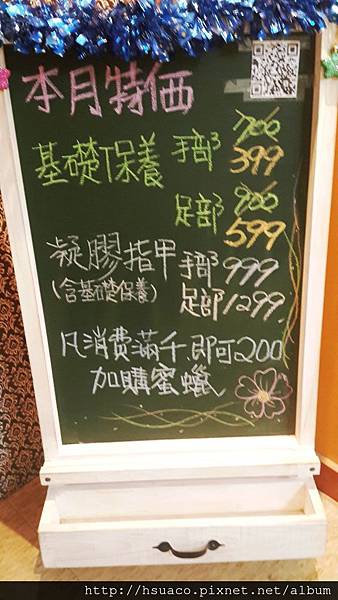 本月特価
基礎保養 手部 700
399
足部 900
599
凝膠指甲 手部 999
(含基礎保養) 足部 1299
凡消費滿千.即可200
加購蜜蠟
http://hsuaco.pixnet.net/album